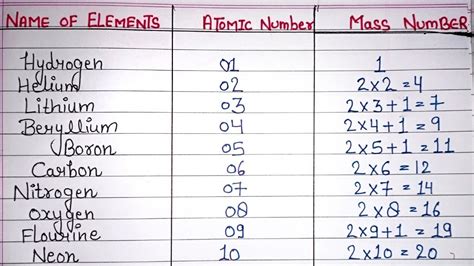 NAME OF ELEMENTS ATOMIC Number MASS NUMBER
Hydrogen 01 1
Helium 02 2×2=4
Lithium 03 2×3+1=7
Beryllium 04 2×4+1=9
Boron 05 2×5+1=11
Carbon 06 2×6=12
Nitrogen 07 2×7=14
Oxygen 08 2×8=16
Flourine 09 2×9+1=19
Neon 10 2×10=20